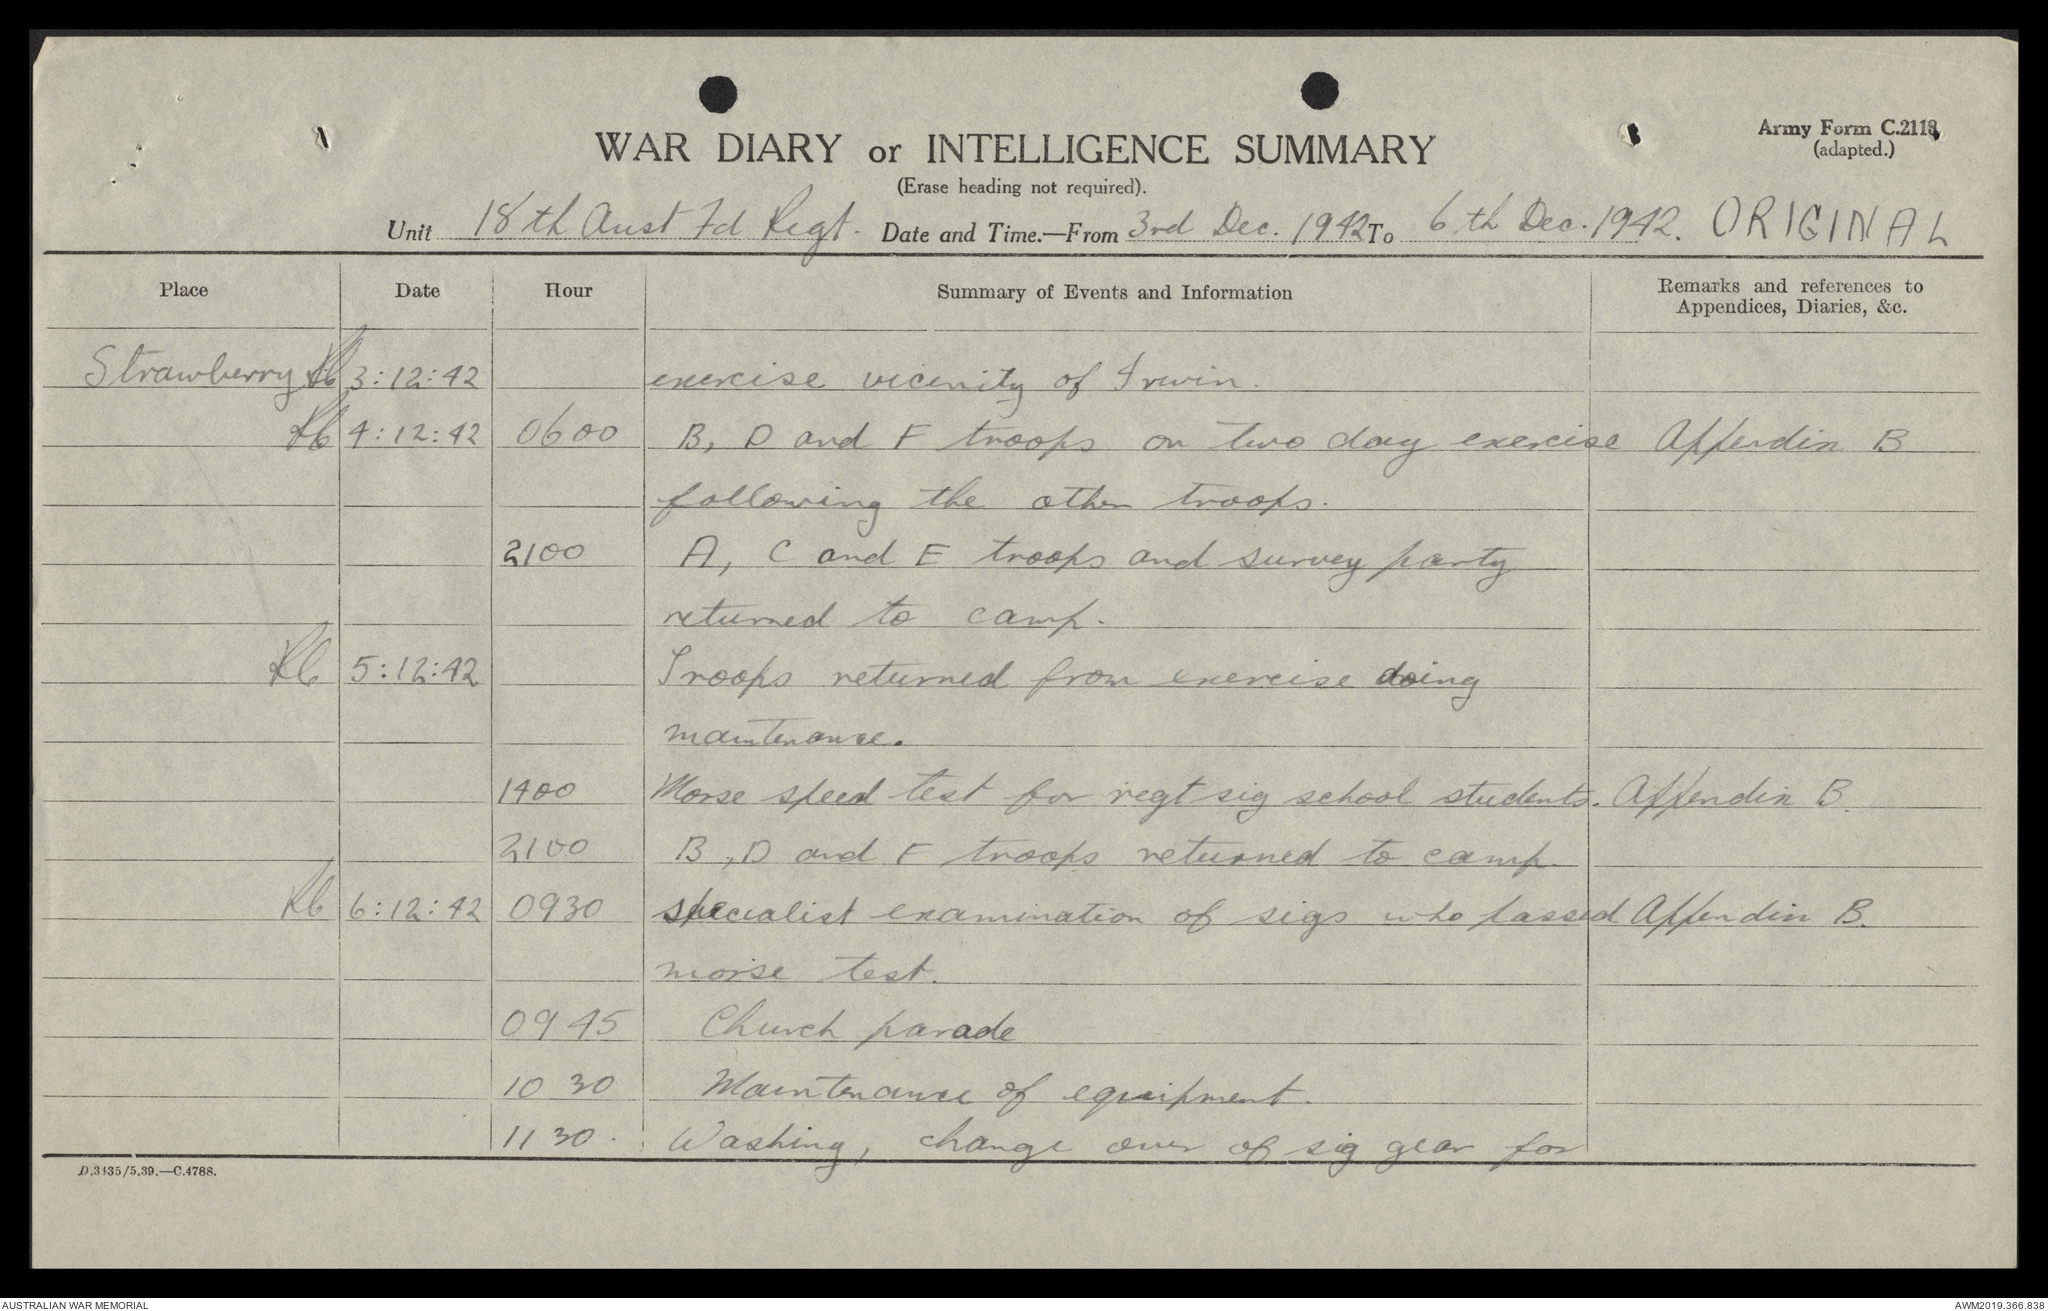 WAR DIARY or INTELLIGENCE SUMMARY
Army Form C.2118
(adapted.)
(Erase heading not required).
Unit 18th Aust Fd Regt. Date and Time.—From 3rd Dec. 1942 To 6th Dec. 1942. ORIGINAL
Place Date Hour Summary of Events and Information Remarks and references to
Appendices, Diaries, &c.
Strawberry 3:12:42 exercise vicinity of Irwin.
4:12:42 0600 B, D and F troops on two day exercise Appendix B
following the other troops.
2100 A, C and E troops and survey party
returned to camp.
5:12:42 Troops returned from exercise doing
maintenance.
1400 Morse speed test for regt sig school students. Appendix B.
2100 B, D and F troops returned to camp.
6:12:42 0930 specialist examination of sigs who passed Appendix B.
morse test.
0945 Church parade
1030 Maintenance of equipment.
1130. Washing, change over of sig gear for
D.3435/5.39.—C.4788.
AUSTRALIAN WAR MEMORIAL
AWM2019.366.838